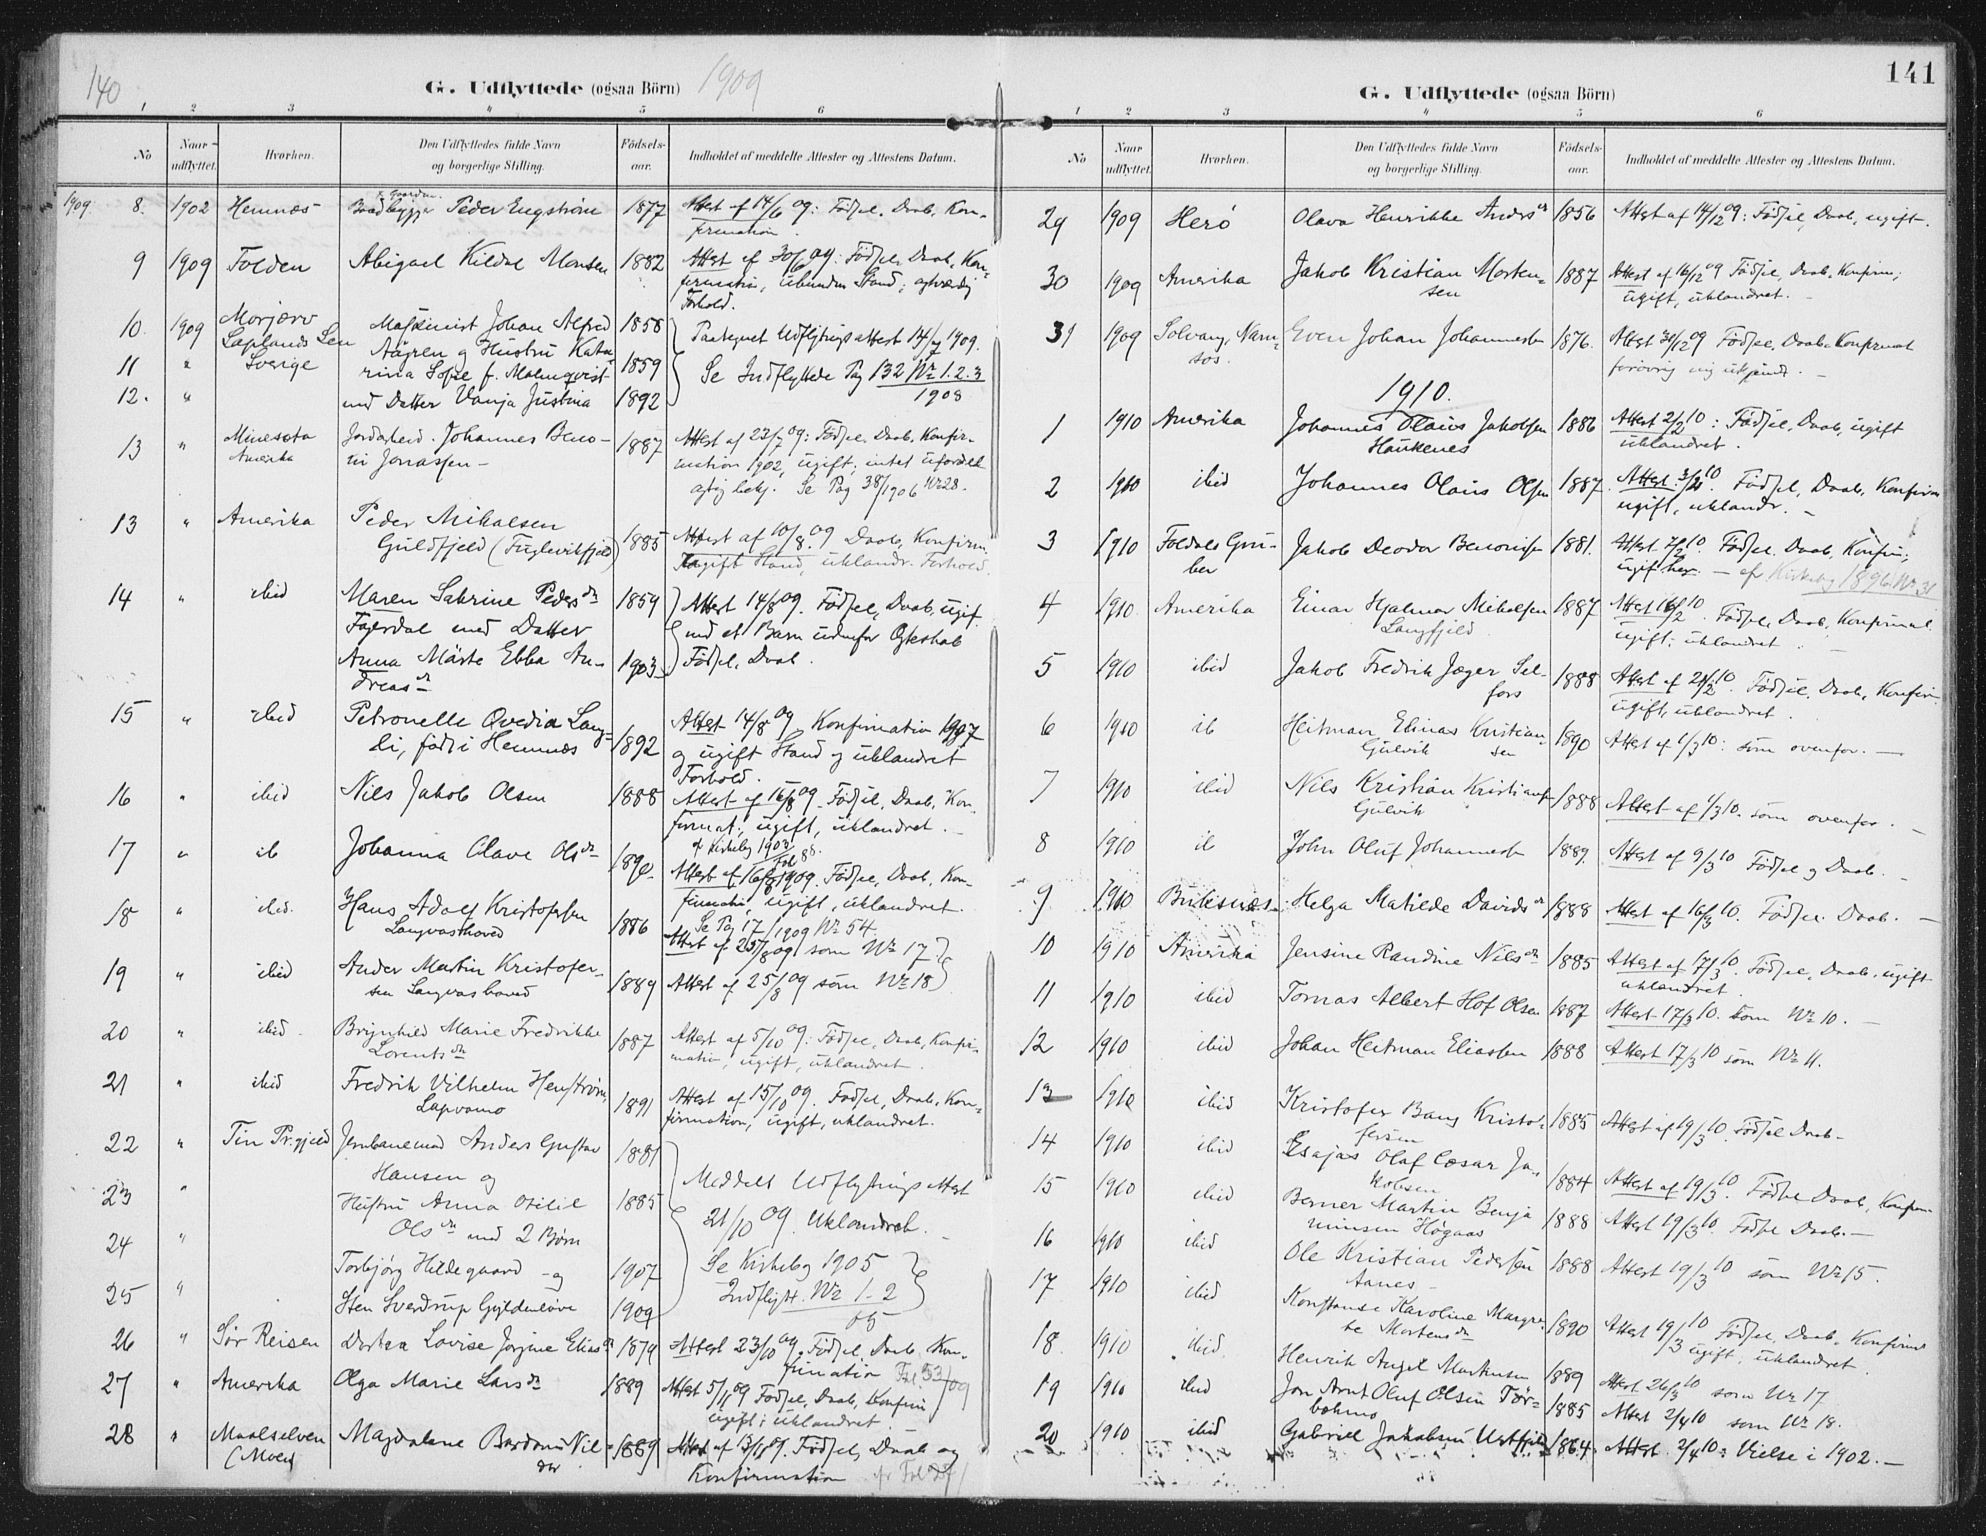 140
G. Udflyttede (ogsaa Börn) 1909
1 2 3 4 5 6
No
Naar udflyttet.
Hvorhen.
Den Udflyttedes fulde Navn og borgerlige Stilling.
Födsels-aar.
Indholdet af meddelte Attester og Attestens Datum.
1909. 8. 1902 Hemnæs Baadbygger Peder Engström 1877 Attest af 14/6 09: Födsel, Daab, Kon-
firmation.
9 1909 Folden Abigael Kildal Monsen 1882 Attest af 30/6 09: Födsel, Daab, Kon-
firmation, ubunden Stand, agtværdig
Forhold.
10. 1909 Morjærv Maskinist Johan Alfred 1858 Paategnet Udflytningsattest 14/7 1909.
Laplands Len Aagren og Hustru Kata-
11 " Sverige rina Sofie f. Malmqvist 1859 Se Indflyttede Pag 132 No 1.2.3
12. " med Datter Vanja Justina 1892 1908
13 " Minesota Jordarbeid. Johannes Beno- 1887 Attest af 23/7 09: Födsel, Daab, Konfir-
Amerika ni Jonassen - mation 1902, ugift, intet ufordel-
agtig bekj. Se Pag 38/1906 No 28.
13 " Amerika Peder Mikalsen
Guldfjeld (Fuglevikfjeld) 1885 Attest af 10/8 09 Daab, Konfirm.
ugift Stand, uklandr. Forhold.
14 " ibid Maren Sabrine Pedersdr 1859 Attest 14/8 09. Födsel, Daab, ugif
Fagerdal med Datter med et Barn udenfor Ægteskab
Anna Märte Ebba An- 1903 Födsel, Daab.
dreasdr
15 " ibid Petronelle Ovedia Lang-
li, född i Hemnæs 1892 Attest 14/8 09 Konfirmation 1907
og ugift Stand og uklandret
Forhold.
16 " ibid Nils Jakob Olsen 1888 Attest af 16/8 09. Födsel, Daab, Kon-
firmat., ugift, uklandret.
17 " ib Johanna Olave Olsdr 1890. Attest af 16/8 1909. Födsel, Daab, Kon-
firmation, ugift, uklandret.
18 " ibid. Hans Adolf Kristofersen 1886 Se Pag 17/1909 No 54.
Langvashoved Attest af 25/8 09 som No 17
19 " ibid Ander Martin Kristofer-
sen Langvashoved 1889 Attest af 25/8 09 som No 18
20 " ibid. Brynhild Marie Fredrikke
Lorentsdr 1887 Attest af 5/10 09: Födsel, Daab, Konfir-
mation, ugift, uklandret.
21 " ibid Fredrik Vilhelm Henström,
Lapvomo 1891 Attest af 15/10 09. Födsel, Daab, Kon-
firmation, ugift, uklandret.
22 " Tin Pr.gjeld Jernbanemand Anders Gustav 1881
Hansen og Meddelt Udflytningsattest
23 " Hustru Anna Otilie 1885
Olsdr med 2 Börn 21/10 09. Uklandret.
24 " Torbjörg Hildegaard og 1907 Se Kirkebog 1905
25 " Sten Sverdrup Gyldenlöve 1909 Indflytt. No 1-2
05
26 " Sör Reisen Dortea Lovise Jörgine Eliasdr 1879 Attest 23/10 09. Födsel, Daab, Kon-
firmation Fol. 53/09
27 " Amerika Olga Marie Larsdr 1889 Attest 5/11 09 Födsel, Daab, Konfirm
ugift; uklandret
28 " Maalselven Magdalene Bardonu Nil- 1889 Attest af 13/11 09. Födsel, Daab og
(Moen) Konfirmation
141
G. Udflyttede (ogsaa Börn)
1 2 3 4 5 6
No
Naar udflyttet.
Hvorhen.
Den Udflyttedes fulde Navn og borgerlige Stilling.
Födsels-aar.
Indholdet af meddelte Attester og Attestens Datum.
29 1909 Herö Olava Henrikke Andersdr 1856 Attest af 14/12 09: Födsel, Daab, ugift.
30 1909 Amerika Jakob Kristian Morten-
sen 1887 Attest af 16/12 09 Födsel, Daab, Konfirm;
ugift, uklandret.
31 1909 Solvang, Nam-
sos Even Johan Johannessen 1876. Attest 31/12 09 Födsel, Daab, Konfirmat
forövrig mig ukjendt.
1910.
1 1910 Amerika Johannes Olaus Jakobsen
Haukenes 1886 Attest 2/2 10: Födsel, Daab, ugift
uklandret.
2 1910 ibid Johannes Olaus Olsen 1887. Attest 3/2 10 Födsel, Daab, Konfirm
ugift, uklandr.
3 1910 Foldals Gru-
ber Jakob Deodor Benonisen 1881. Attest 7/2 10. Födsel, Daab, Konfirm;
ugift her - cfr Kirkebog 1896 No 31
4 1910. Amerika Einar Hjalmar Mikalsen
Langfjeld 1887 Attest 16/2 10. Födsel, Daab, Konfirmat.
ugift; uklandret.
5 1910 ibid Jakob Fredrik Jæger Sel-
fors 1888 Attest af 21/2 10. Födsel, Daab, Konfirm
ugift, uklandret.
6 1910 ib Heitman Elinas Kristian-
Gulvik sen 1890 Attest af 1/3 10: som ovenfor.
7 1910 ibid Nils Kristian Kristiansen
Gulvik 1888 Attest af 1/3 10. som ovenfor.
8 1910 ib John Oluf Johannessen 1889. Attest af 9/3 10 Födsel og Daab.
9 1910 Buksnæs Helga Matilde Davidsdr 1888 Attest af 16/3 10. Födsel. Daab.
10 1910 Amerika Jensine Randine Nilsdr 1885 Attest af 17/3 10. Födsel, Daab, ugift
uklandret.
11 1910 ibid Tomas Albert Hof Olsen 1887 Attest 17/3 10. som No 10.
12 1910 ibid Johan Heitman Eliassen 1888 Attest 17/3 10 som No 11.
13 1910 ibid Kristofer Bang Kristo-
fersen 1885 Attest af 19/3 10. Födsel Daab-
14 1910 ibid Esajas Olaf Cæsar Ja-
kobsen 1884 Attest af 19/3 10. Födsel Daab, Konfirm
15 1910 ibid Berner Martin Benja
minsen Högaas 1888 Attest 19/3 10. Födsel Daab.
16 1910 ibid Ole Kristian Pedersen
Aanes 1888 Attest 19/3 10 som No 15.
17 1910 ibid Konstanse Karoline Margre-
te Mortensdr 1890 Attest 19/3 10 Födsel, Daab, Konfirm
ugift, uklandret.
18 1910 ibid. Henrik Angel Martinsen 1889 Attest 26/3 10 som No 17
19 1910 ibid Jon Arnt Oluf Olsen Tör-
bakmo 1885 Attest 2/4 10 som No 18.
20 1910 ibid Gabriel Jakobsen Urtfjeld 1864. Attest 2/4 10: Vielse i 1902.